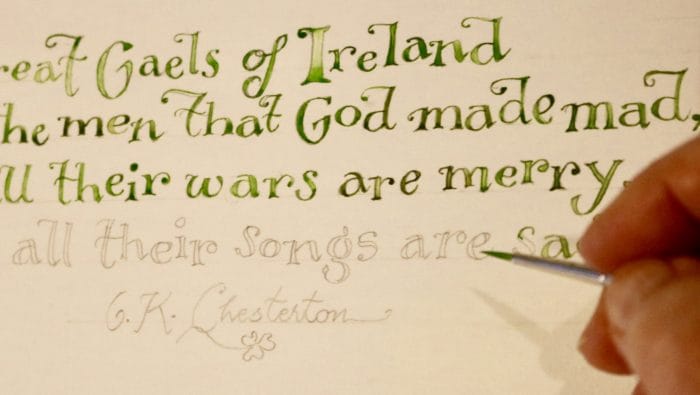 reat Gaels of Ireland
he men that God made mad,
ll their wars are merry,
all their songs are sa
G.K. Chesterton